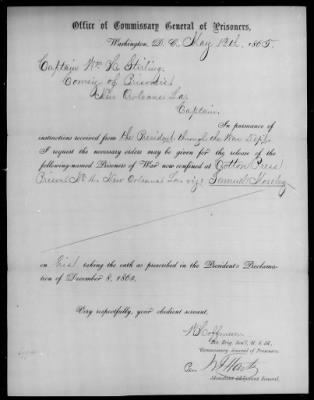 Office of Commissary General of Prisoners,
Washington, D. C., May 12th, 1865.
Captain Wm
Comsy of Prisoners
New Orleans La
Captain.
In pursuance of
instructions received from the President through the War Dept.
I request the necessary orders may be given for the release of the
following-named Prisoners of War now confined at Cotton Press
Prison No New Orleans La viz Samuel
on his taking the oath as prescribed in the President's Proclama-
tion of December 8, 1863.
Very respectfully, your obedient servant,
W. Hoffman
Bvt. Brig. Gen'l, U. S. A.
Commissary General of Prisoners.
Per
General.